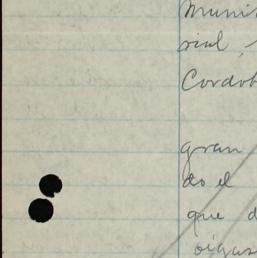 Muni
rial,
Cordob
gran
do el
que d
oigas